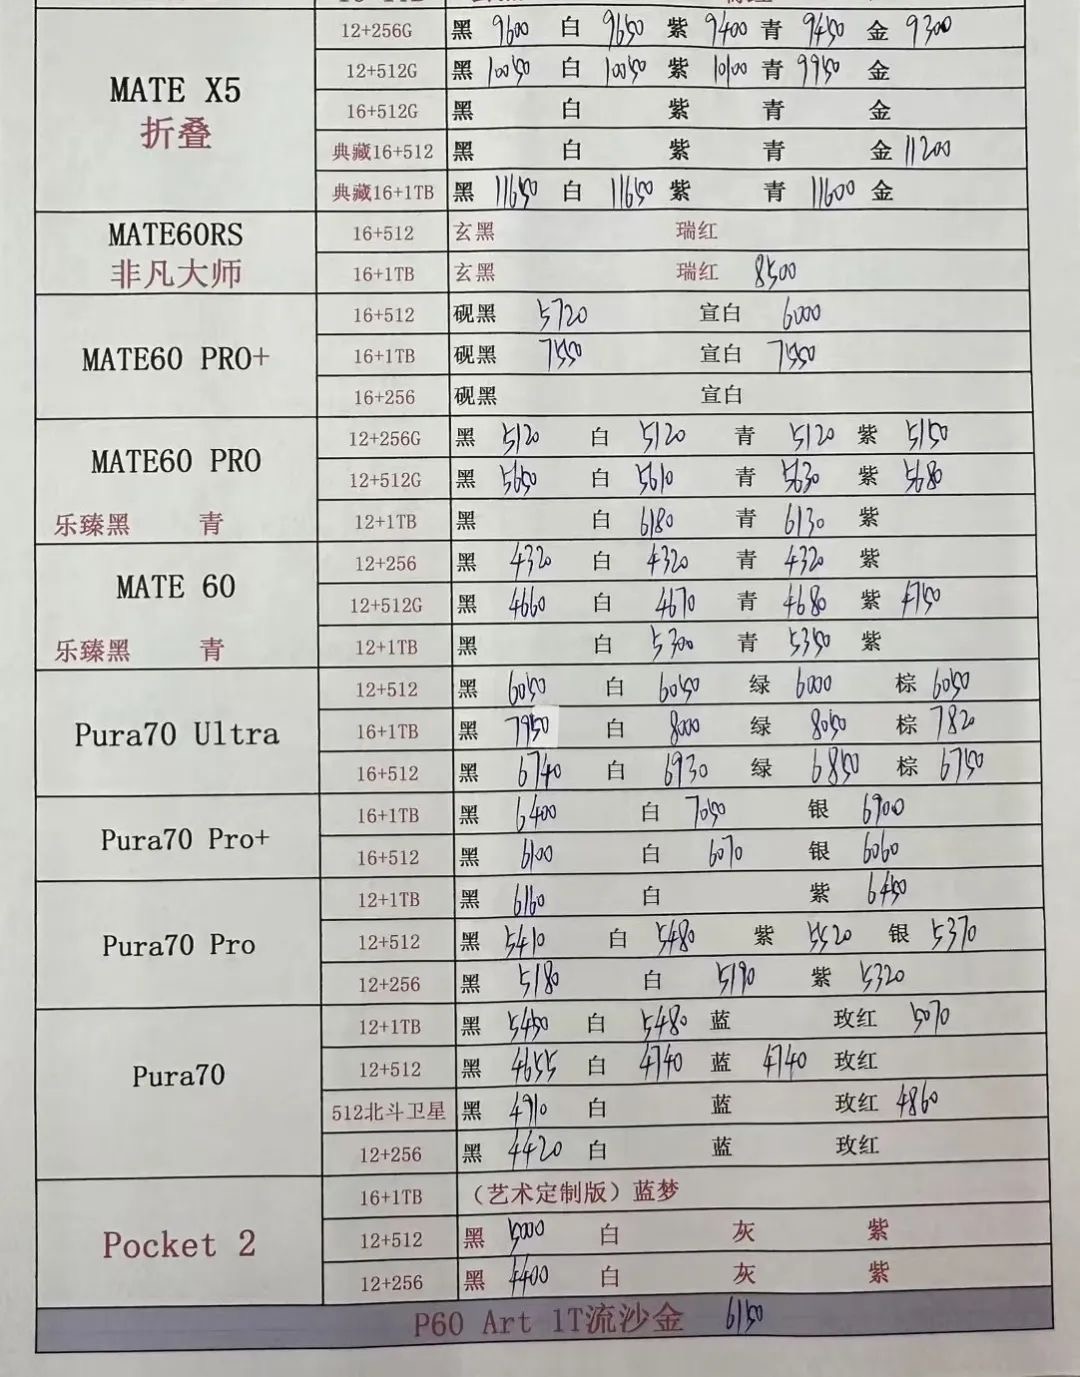 12+256G 黑 9600 白 9650 紫 9400 青 9450 金 9300
MATE X5
折叠
12+512G 黑 10050 白 10050 紫 10100 青 9950 金
16+512G 黑 白 紫 青 金
典藏16+512 黑 白 紫 青 金 11200
典藏16+1TB 黑 11650 白 11650 紫 青 11600 金
MATE60RS
非凡大师
16+512 玄黑 瑞红
16+1TB 玄黑 瑞红 8500
MATE60 PRO+
16+512 砚黑 5720 宣白 6000
16+1TB 砚黑 7550 宣白 7550
16+256 砚黑 宣白
MATE60 PRO
乐臻黑 青
12+256G 黑 5120 白 5120 青 5120 紫 5150
12+512G 黑 5650 白 5610 青 5630 紫 5680
12+1TB 黑 白 6180 青 6130 紫
MATE 60
乐臻黑 青
12+256 黑 4320 白 4320 青 4320 紫
12+512G 黑 4660 白 4670 青 4680 紫 4750
12+1TB 黑 白 5300 青 5350 紫
Pura70 Ultra
12+512 黑 6050 白 6050 绿 6000 棕 6050
16+1TB 黑 7950 白 8000 绿 8050 棕 7820
16+512 黑 6740 白 6930 绿 6850 棕 6750
Pura70 Pro+
16+1TB 黑 6400 白 7050 银 6900
16+512 黑 6100 白 6070 银 6060
Pura70 Pro
12+1TB 黑 6160 白 紫 6450
12+512 黑 5410 白 5480 紫 5520 银 5370
12+256 黑 5180 白 5190 紫 5320
Pura70
12+1TB 黑 5450 白 5480 蓝 玫红 5070
12+512 黑 4655 白 4740 蓝 4740 玫红
512北斗卫星 黑 4910 白 蓝 玫红 4860
12+256 黑 4420 白 蓝 玫红
Pocket 2
16+1TB （艺术定制版）蓝梦
12+512 黑 5000 白 灰 紫
12+256 黑 4400 白 灰 紫
P60 Art 1T流沙金 6150